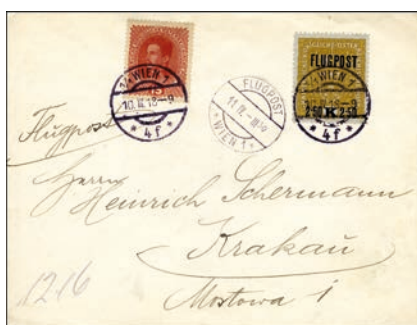 15
1/1 WIEN 1
10.III.18-9
* 4f *
FLUGPOST
11.IV.-III-9
* WIEN 1 *
FLUGPOST
1/1 WIEN 1
10.III.18-9
2·50 K 2·50
* 4f *
Flugpost
Herrn
Heinrich Schermann
Krakau
Mostowa 1
1216